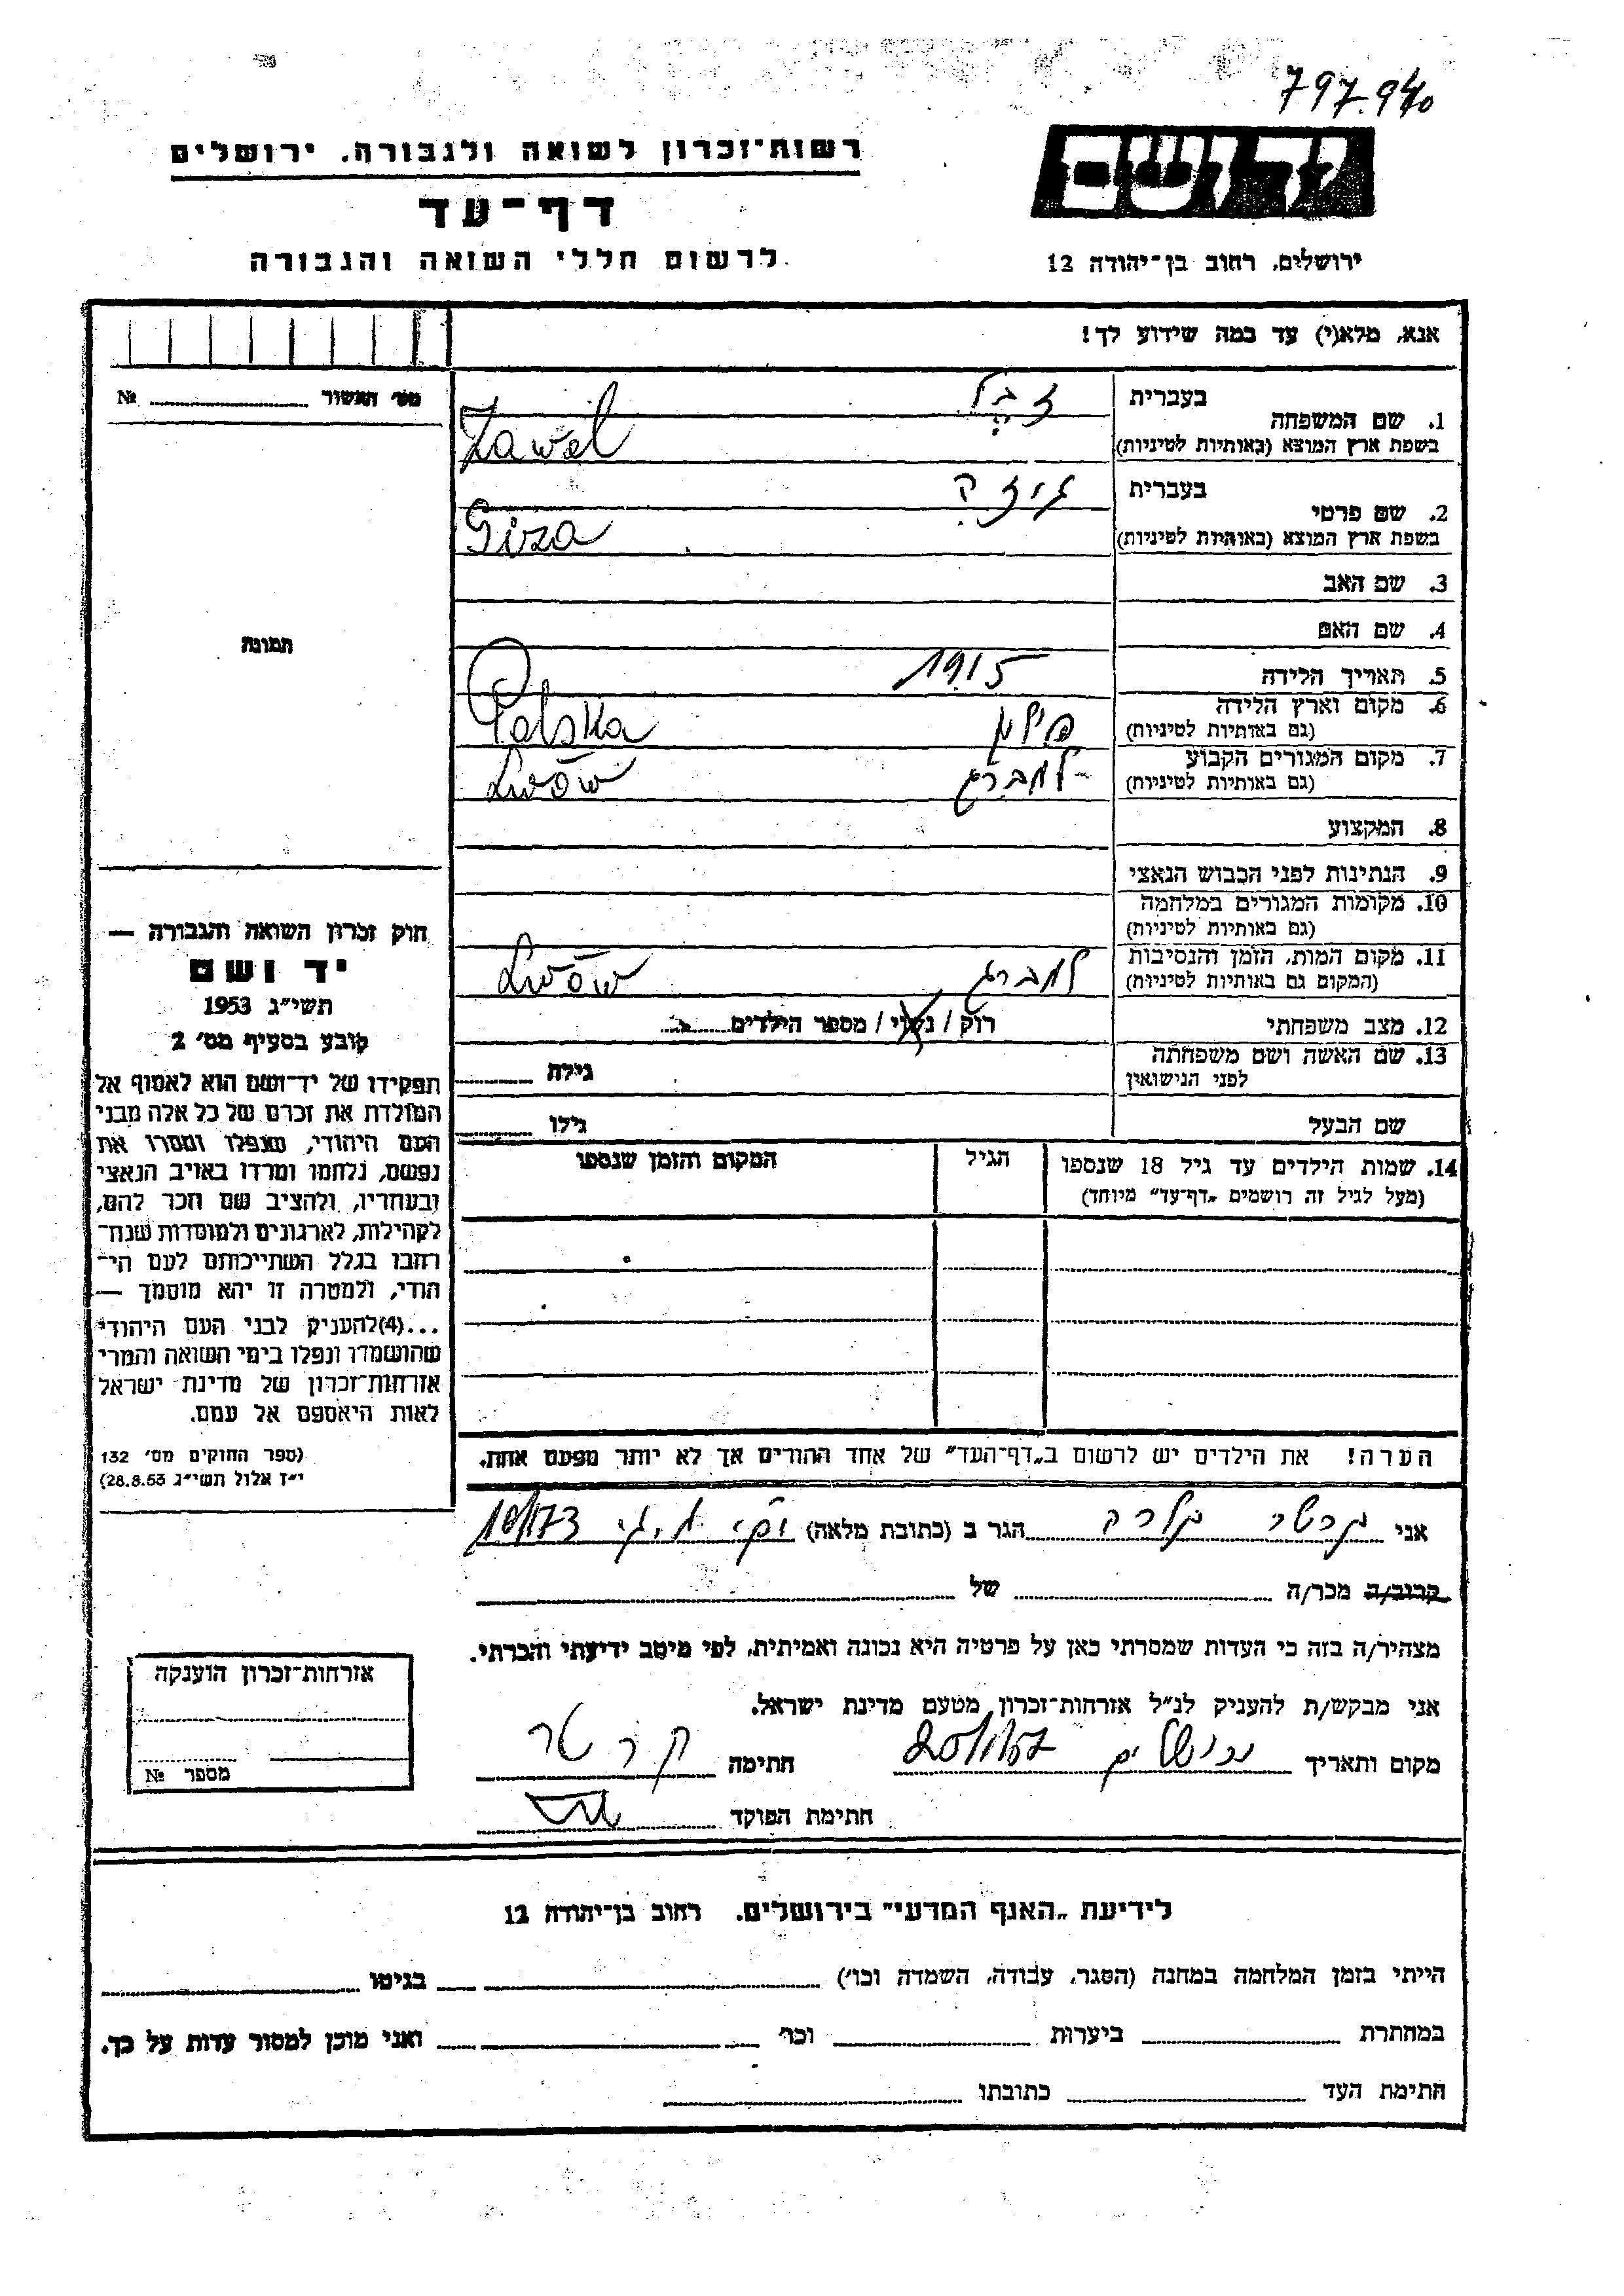 797.940
רשות־זכרון לשואה ולגבורה, ירושלים
ידושם
דף־עד
לרשום חללי השואה והגבורה
ירושלים, רחוב בן־יהודה 12
אנא, מלא(י) עד כמה שידוע לך!
מס' האשור № 
בעברית
1. שם המשפחה
בשפת ארץ המוצא (באותיות לטיניות)
זבל
Zawel
בעברית
2. שם פרטי
בשפת ארץ המוצא (באותיות לטיניות)
גיזה
Giza
3. שם האב
4. שם האם
תמונה
5. תאריך הלידה 1915
6. מקום וארץ הלידה
(גם באותיות לטיניות)
פולין Polska
7. מקום המגורים הקבוע
(גם באותיות לטיניות)
למברג Lwów
8. המקצוע
9. הנתינות לפני הכבוש הנאצי
10. מקומות המגורים במלחמה
(גם באותיות לטיניות)
11. מקום המות, הזמן והנסיבות
(המקום גם באותיות לטיניות)
למברג Lwów
12. מצב משפחתי רוק / נשוי / מספר הילדים
13. שם האשה ושם משפחתה
לפני הנישואין גילה
שם הבעל גילו
14. שמות הילדים עד גיל 18 שנספו
(מעל לגיל זה רושמים „דף־עד" מיוחד)
הגיל
המקום והזמן שנספו
חוק זכרון השואה והגבורה —
יד ושם
תשי"ג 1953
קובע בסעיף מס' 2
תפקידו של יד־ושם הוא לאסוף אל
המולדת את זכרם של כל אלה מבני
העם היהודי, שנפלו ומסרו את
נפשם, נלחמו ומרדו באויב הנאצי
ובעוזריו, ולהציב שם וזכר להם,
לקהילות, לארגונים ולמוסדות שנח־
רבו בגלל השתייכותם לעם הי־
הודי, ולמטרה זו יהא מוסמך —
...(4)להעניק לבני העם היהודי
שהושמדו ונפלו בימי השואה והמרי
אזרחות־זכרון של מדינת ישראל
לאות היאספם אל עמם.
(ספר החוקים מס' 132
י"ז אלול תשי"ג 28.8.53)
הערה! את הילדים יש לרשום ב„דף־העד" של אחד ההורים אך לא יותר מפעם אחת.
אני הגר ב (כתובת מלאה)
קרוב/ה מכר/ה של
מצהיר/ה בזה כי העדות שמסרתי כאן על פרטיה היא נכונה ואמיתית, לפי מיטב ידיעתי והכרתי.
אני מבקש/ת להעניק לנ"ל אזרחות־זכרון מטעם מדינת ישראל.
מקום ותאריך ירושלים חתימה קרטר
חתימת הפוקד
אזרחות־זכרון הוענקה
מספר №
לידיעת „האגף המדעי" בירושלים, רחוב בן־יהודה 12
הייתי בזמן המלחמה במחנה (הסגר, עבודה, השמדה וכו') בגיטו
במחתרת ביערות וכו' ואני מוכן למסור עדות על כך.
חתימת העד כתובתו